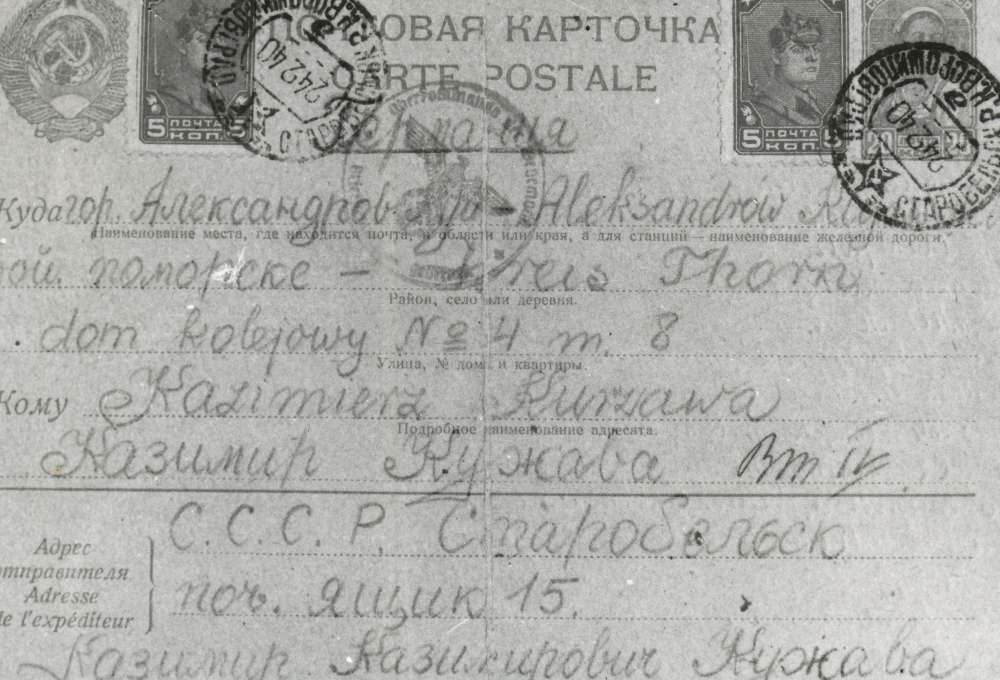 ПОЧТОВАЯ КАРТОЧКА
CARTE POSTALE
5 ПОЧТА КОП. 5
5 ПОЧТА КОП. 5
20 20
24 2 40
24 2 40
СТАРОБЕЛЬСК
Германия
Куда гор. Александров Куя - Aleksandrów
Наименование места, где находится почта, и области или края, а для станций — наименование железной дороги.
ой поморске - Kreis Thorn
Район, село или деревня.
dom kolejowy № 4 m. 8
Улица, № дома и квартиры.
Кому Kazimierz Kurzawa
Подробное наименование адресата.
Казимир Кужава
С.С.С.Р. Старобельск
Адрес отправителя
Adresse de l'expéditeur
поч. ящик 15.
Казимир Казимирович Кужава